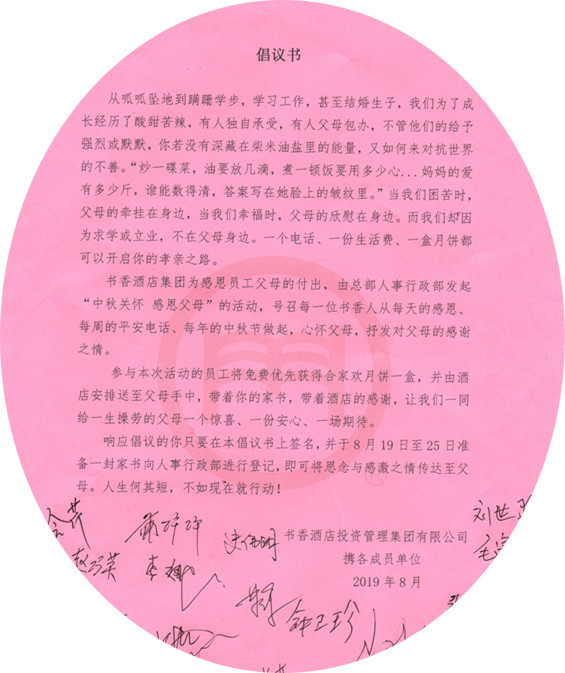 倡议书
从呱呱坠地到蹒跚学步，学习工作，甚至结婚生子，我们为了成
长经历了酸甜苦辣，有人独自承受，有人父母包办，不管他们的给予
强烈或默默，你若没有深藏在柴米油盐里的能量，又如何来对抗世界
的不善。“炒一碟菜，油要放几滴，煮一顿饭要用多少心...妈妈的爱
有多少斤，谁能数得清，答案写在她脸上的皱纹里。”当我们困苦时，
父母的牵挂在身边，当我们幸福时，父母的欣慰在身边。而我们却因
为求学或立业，不在父母身边。一个电话、一份生活费、一盒月饼都
可以开启你的孝亲之路。
书香酒店集团为感恩员工父母的付出，由总部人事行政部发起
“中秋关怀 感恩父母”的活动，号召每一位书香人从每天的感恩、
每周的平安电话、每年的中秋节做起，心怀父母，抒发对父母的感谢
之情。
参与本次活动的员工将免费优先获得合家欢月饼一盒，并由酒
店安排送至父母手中，带着你的家书，带着酒店的感谢，让我们一同
给一生操劳的父母一个惊喜、一份安心、一场期待。
响应倡议的你只要在本倡议书上签名，并于 8 月 19 日至 25 日准
备一封家书向人事行政部进行登记，即可将思念与感激之情传达至父
母。人生何其短，不如现在就行动！
书香酒店投资管理集团有限公司
携各成员单位
2019 年 8 月
刘世
钟卫珍